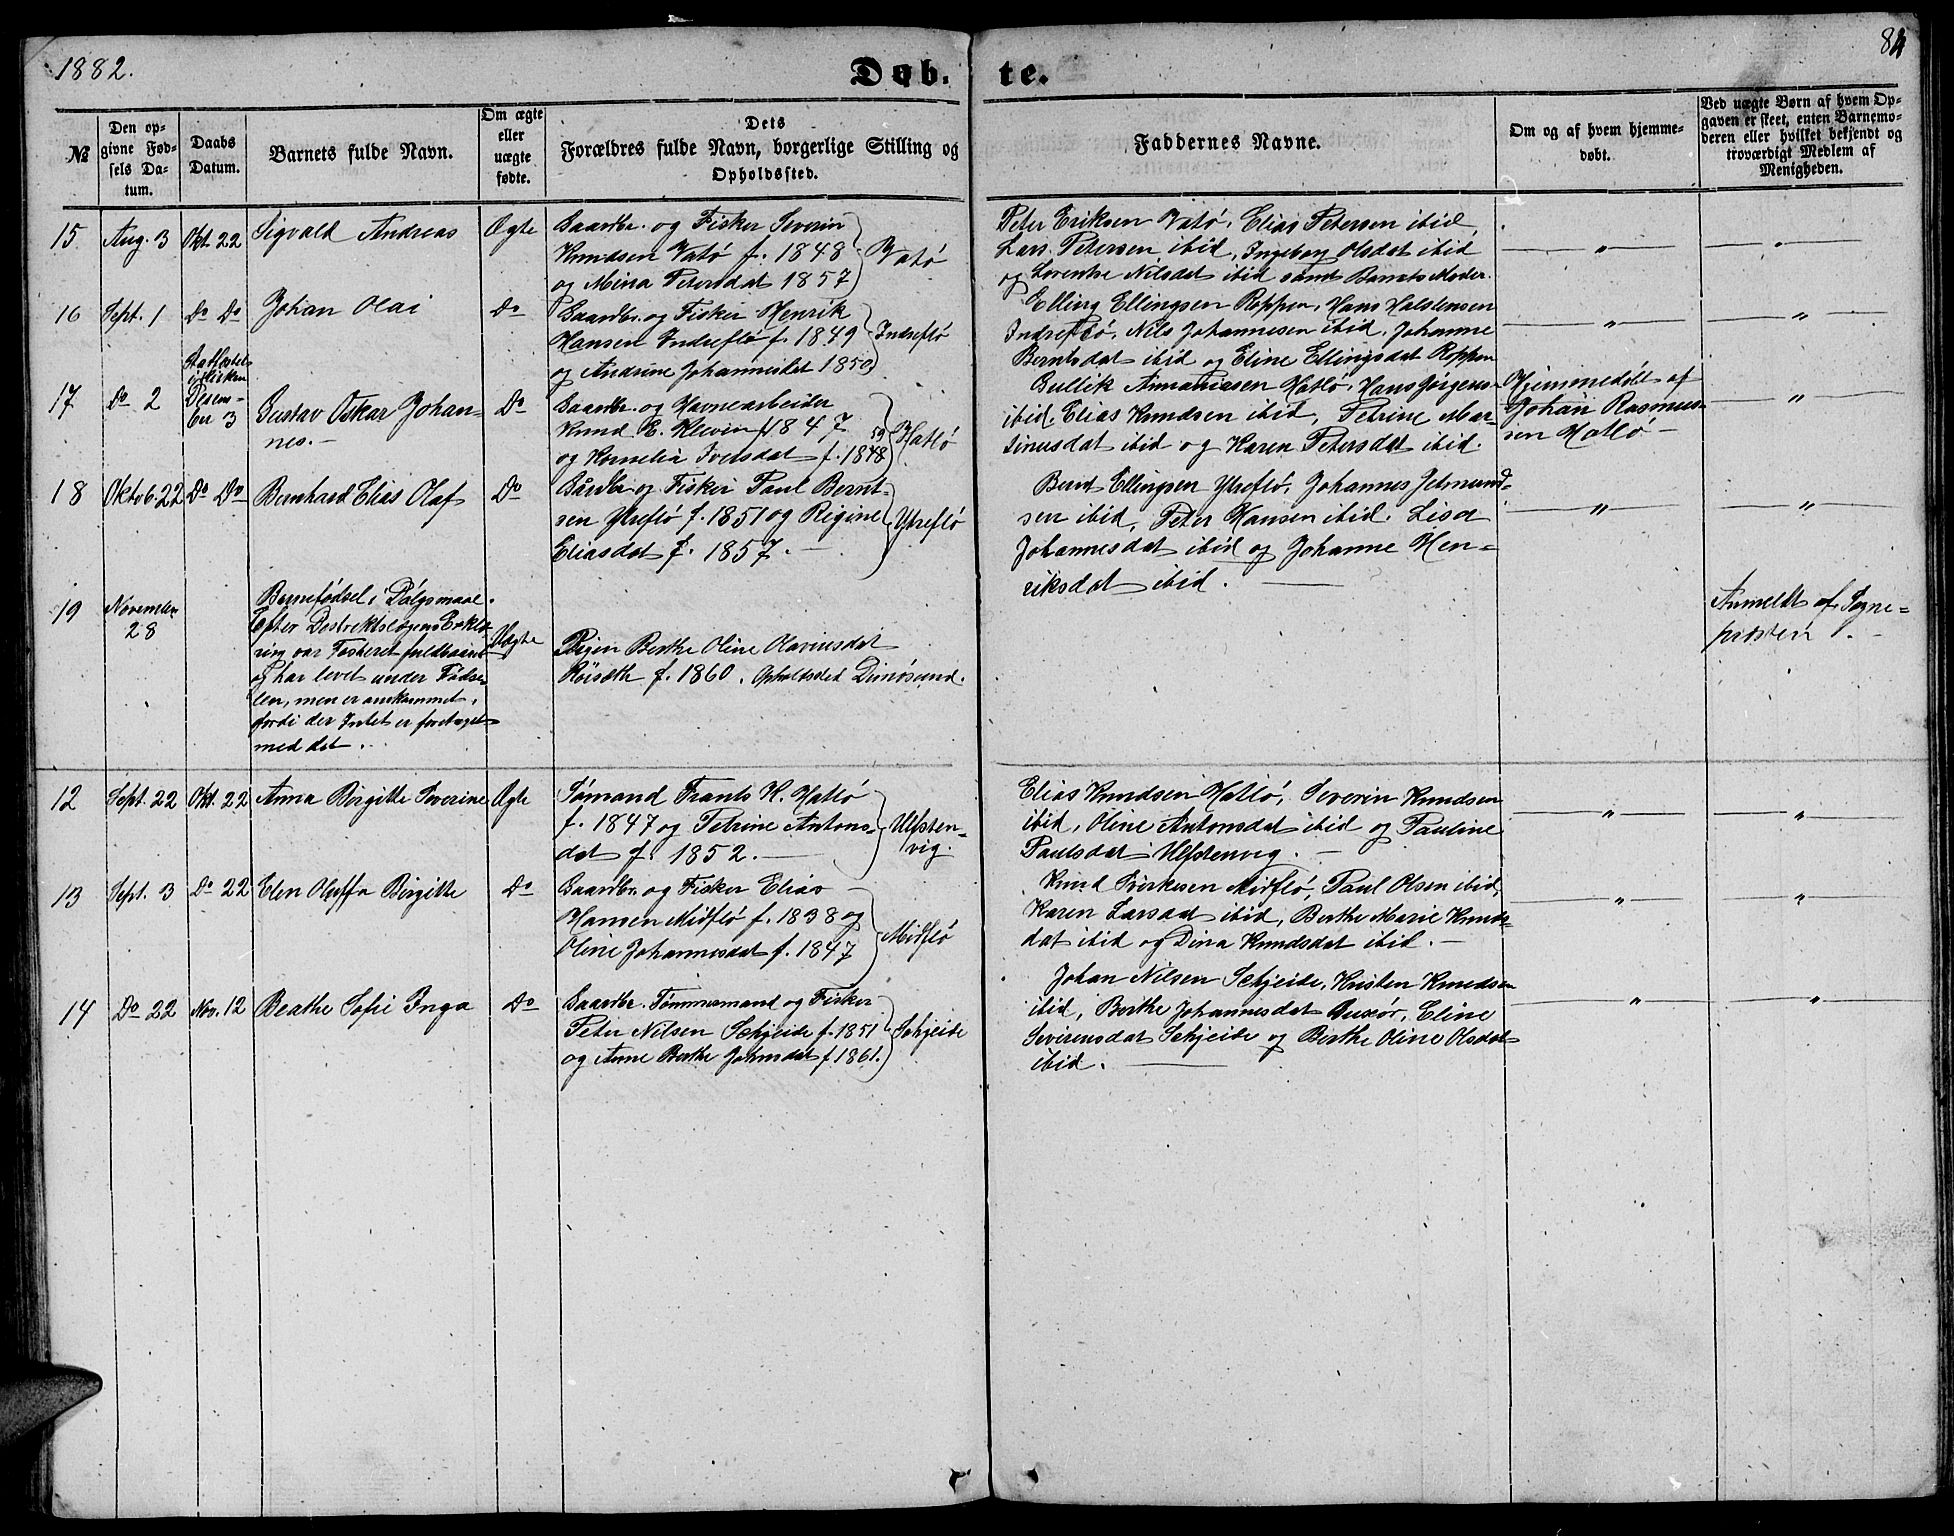 1882.
Døb.
te.
84
№
Den op-
givne Fød-
sels Da-
tum.
Daabs
Datum.
Barnets fulde Navn.
Om ægte
eller
uægte
fødte.
Dets
Forældres fulde Navn, borgerlige Stilling og
Opholdssted.
Faddernes Navne.
Om og af hvem hjemme-
døbt.
Ved uægte Børn af hvem Op-
gaven er skeet, enten Barnemo-
deren eller hvilket bekjendt og
troværdigt Medlem af
Menigheden.
15
Aug. 3
Okt 22
Sigvald Andreas
Ægte
Gaardbr. og Fisker Severin
Knudsen Vatö f. 1848
og Mina Petersdat 1857
Vatö
Peter Eriksen Vatö, Elias Petersen ibid,
Lars Petersen ibid, Ingeborg Olsdat ibid
og Lorentse Nilsdat ibid samt Barnets Moder.
16
Sept. 1
Do Do
Johan Olai
Do
Gaardbr. og Fisker Henrik
Hansen Indreflö f. 1849
og Andrine Johannesdat 1850
Indreflö
Elling Ellingsen Roppen, Hans Halstensen
Indreflö, Nils Johannesen ibid, Johanne
Berntsdat ibid og Eline Ellingsdat Roppen
17
Do 2
Stadfæstet
i Kirken
Desem-
ber 3
Gustav Oskar Johan-
nes.
Do
Gaardbr. og Havnearbeider
Knud E. Klevin f. 1847
og Kornelia Iversdat f. 1848
59
Hatlö
Gullik Ananiassen Hatlö, Hans Jörgens-
ibid. Elias Knudsen ibid, Petrine Mar-
tinusdat ibid og Karen Petersdat ibid.
Hjemmedöbt af
Johan Rasmus-
sen Hatlö
18
Oktob. 22
Do Do
Bernhard Elias Olaf
Do
Gårdbr og Fisker Paul Bernt-
sen Ytreflö f. 1851 og Rigine
Eliasdat f. 1857.
Ytreflö
Bernt Ellingsen Ytreflö, Johannes Jetmund-
sen ibid, Peter Hansen ibid. Lisa
Johannesdat ibid og Johanne Hen-
riksdat ibid.
19
November
28
Barnefödsel i Dölgsmaal.
Efter Destriktslægens Erklæ-
ring var Fosteret fuldbaaret
og har levet under Fødse-
len, men er omkommet,
fordi der Intet er foretaget
med det.
Uægte
Pigen Berthe Oline Olavinesdat
Röisæth f. 1860. Opholdssted Dimösund.
Anmeldt af Sogne-
præsten.
12
Sept. 22
Okt. 22
Anna Birgitte Severine
Ægte
Sømand Frants K. Hatlö
f. 1847 og Petrine Antons-
dat f. 1852.
Ulfsten-
vig.
Elias Knudsen Hatlö, Severin Knudsen
ibid, Oline Antonsdat ibid og Pauline
Paulsdat Ulfstenvig.
13
Sept. 3
Do 22
Elen Oluffa Birgitte
Do
Gaardbr. og Fisker Elias
Hansen Midflö f. 1838 og
Oline Johannesdat f. 1847
Midflö
Knud Sverkesen Midflö, Paul Olsen ibid,
Karen Larsdat ibid, Berthe Marie Knuds-
dat ibid og Dina Knudsdat ibid.
14
Do 22
Nov. 12
Beathe Sofie Inga
Do
Gaardbr. Tömmermand og Fisker
Peter Nilsen Schjeide f. 1851
og Anne Berthe Johnsdat f 1861.
Schjeide
Johan Nilsen Schjeide, Kristen Knudsen
ibid, Berthe Johannesdat Dueör, Eline
Severinsdat Schjeide og Berthe Oline Olsdat
ibid.